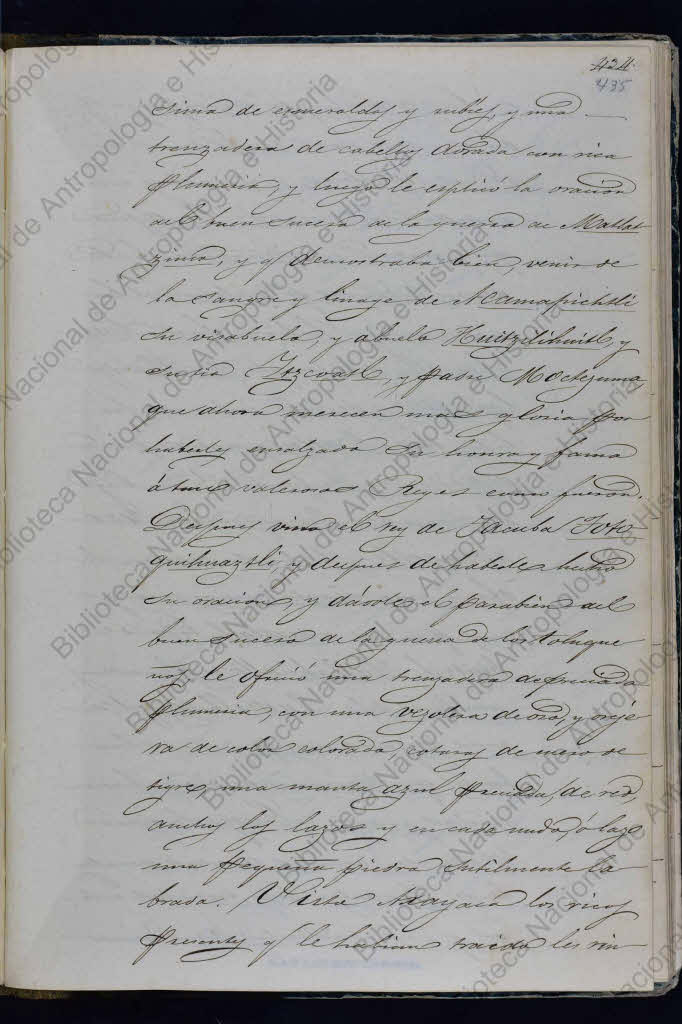 424.
435
sima de esmeraldas y rubíes, y una
trenzadera de cabellos dorada con rica
plumeria, y luego le esplicó la oracion
del buen suceso de la guerra de Matlat
zinco, y q demostraba bien, venir de
la sangre y linage de Acamapichtli
su visabuelo, y abuelo Huitzilihuitl, y
su tio Itzcoatl, y padre Moctezuma,
que ahora merecen mas gloria por
haberles ensalzado su honra y fama
á tan valerosos Reyes como fueron.
Despues vino el rey de Tacuba Toto
quihuaztli, y despues de haberle hecho
su oracion, y dádole el parabien del
buen suceso de la guerra de los toluque
ños, le ofreció una trenzadera de preciada
plumeria, con una vezolera de oro, y oreje
ra de color colorado, cotaras de cuero de
tigre, una manta azul preciada, de red,
anchos los lazos y en cada nudo, ó lazo
una pequeña piedra sutilmente la
brada. Visto Axayaca los ricos
presentes q le habian traido les rin
Biblioteca Nacional de Antropología e Historia